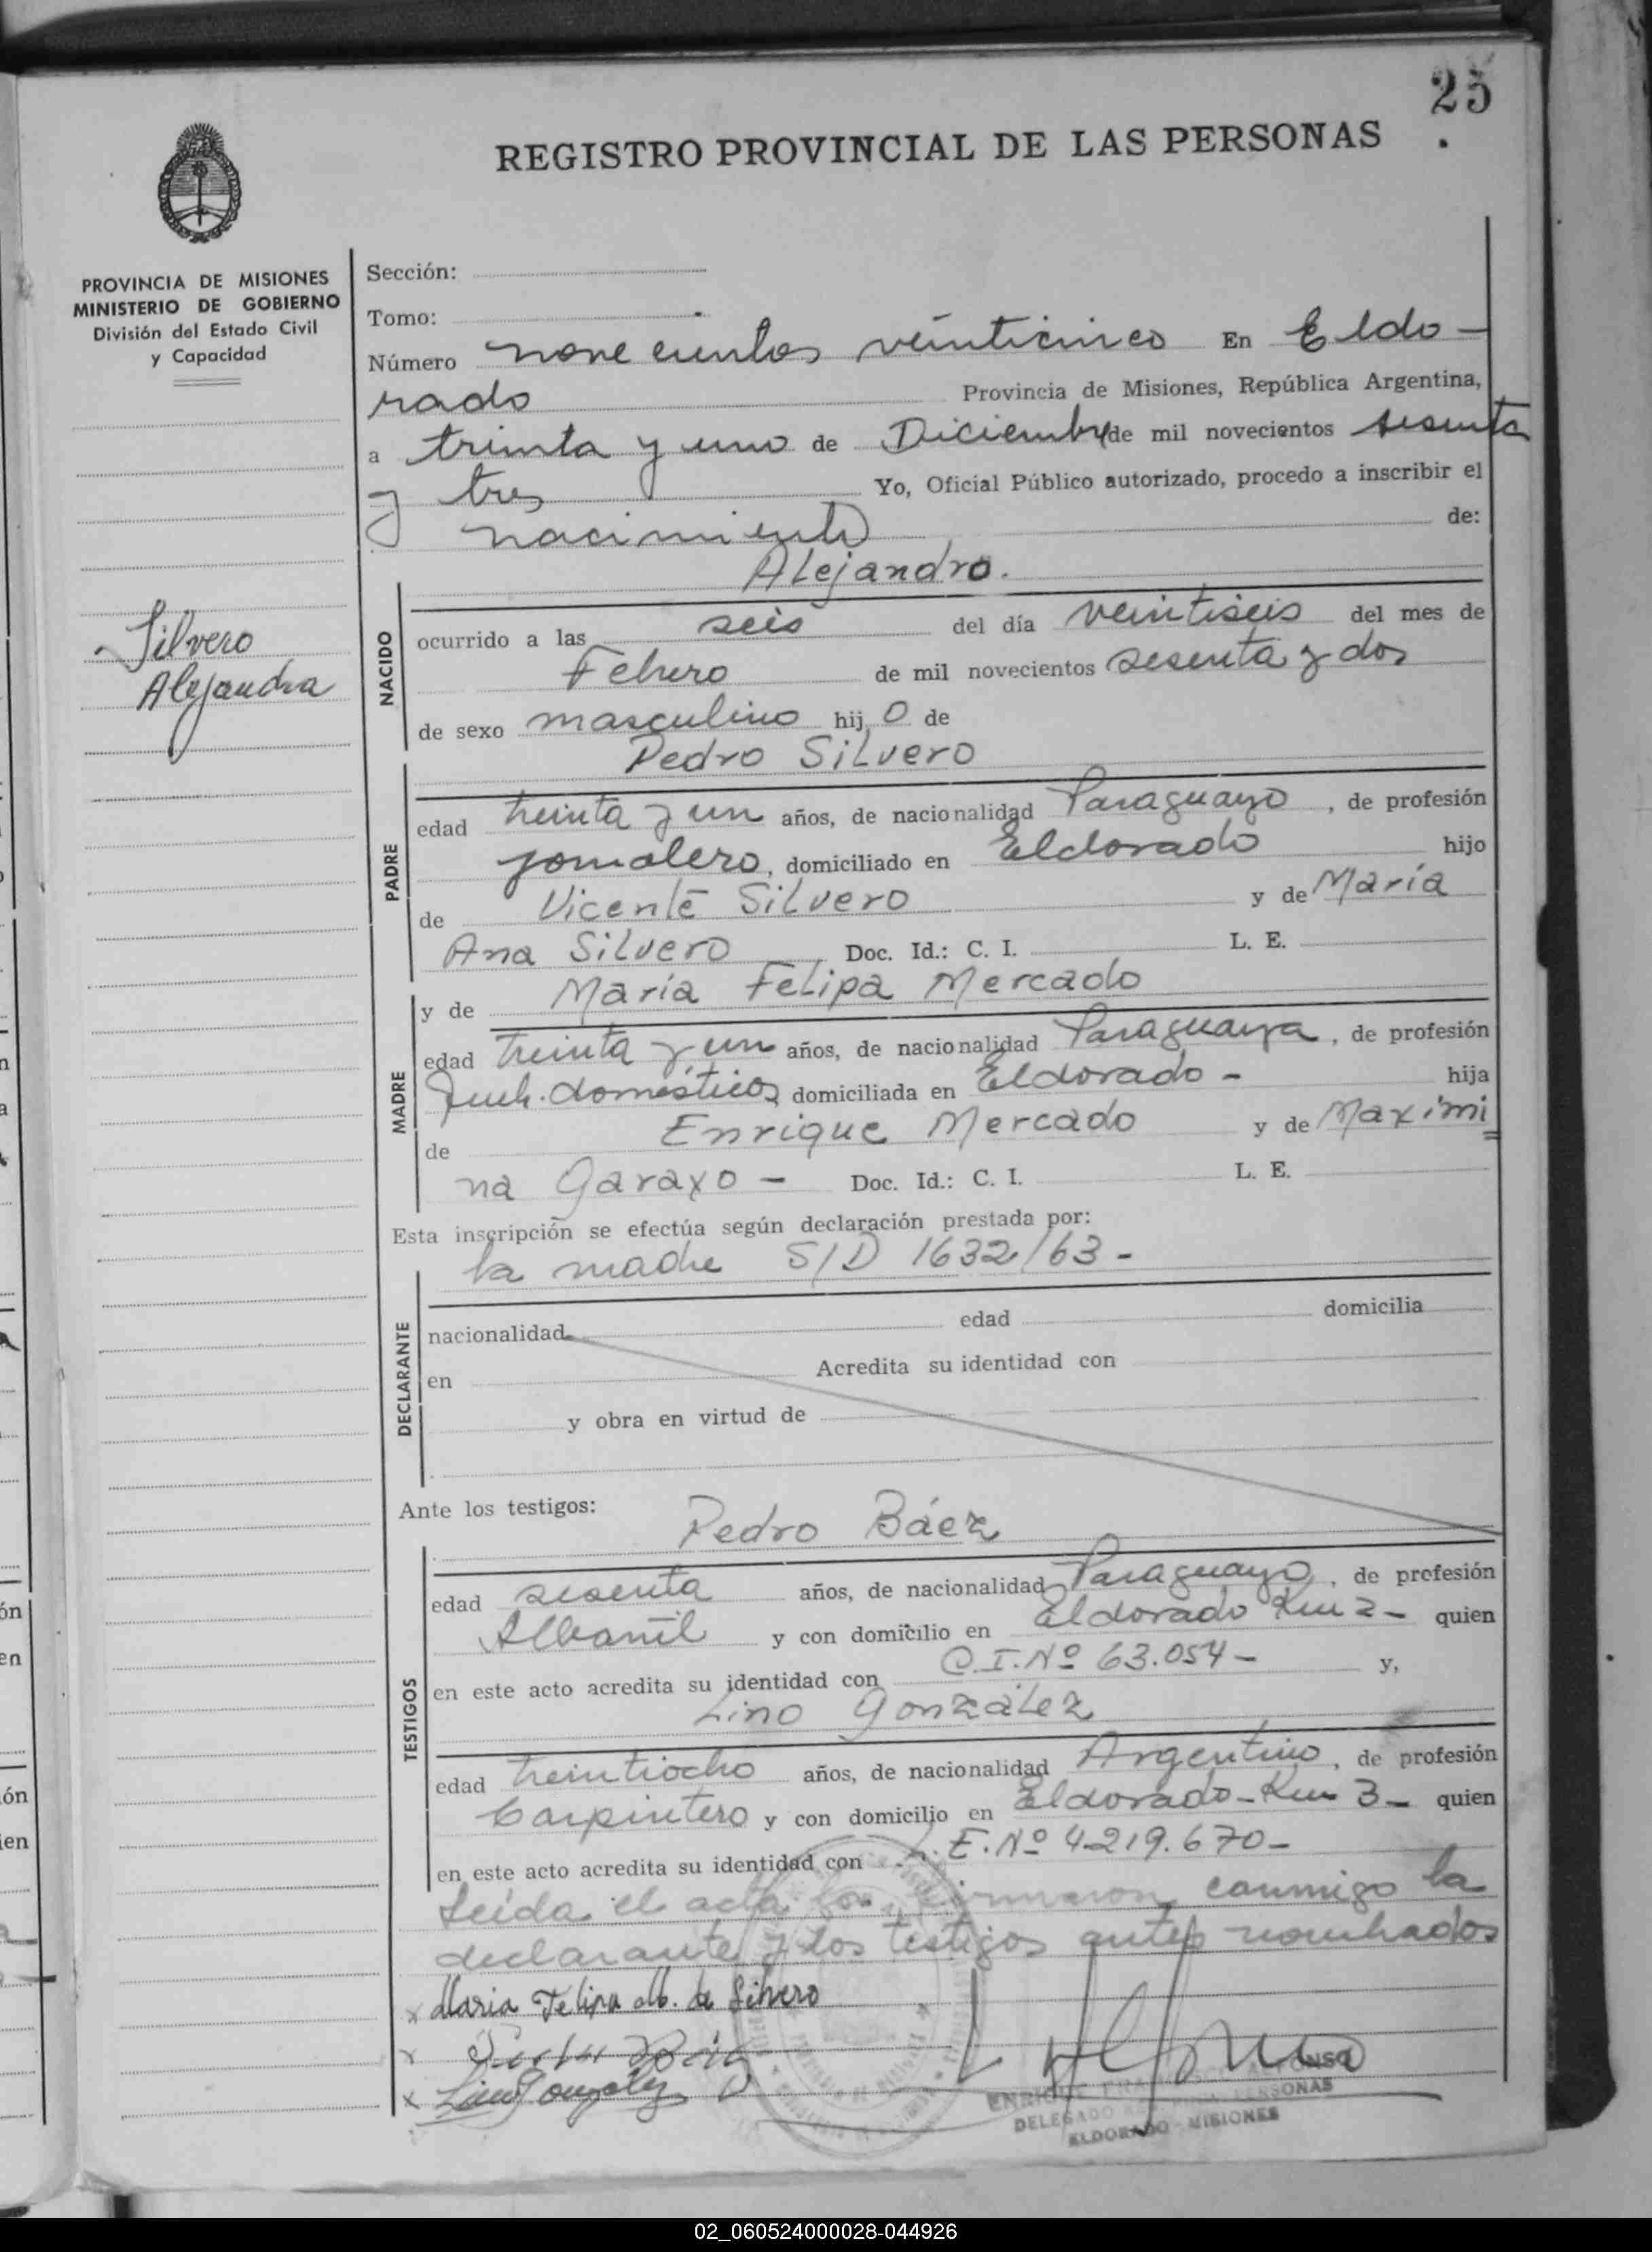 25
REGISTRO PROVINCIAL DE LAS PERSONAS
PROVINCIA DE MISIONES
MINISTERIO DE GOBIERNO
División del Estado Civil
y Capacidad
Silvero
Alejandra
Sección:
Tomo:
Número novecientos veinticinco En Eldo-
rado Provincia de Misiones, República Argentina,
a treinta y uno de Diciembre de mil novecientos sesenta
y tres Yo, Oficial Público autorizado, procedo a inscribir el
nacimiento de:
Alejandro.
NACIDO
ocurrido a las seis del día veintiseis del mes de
Febrero de mil novecientos sesenta y dos
de sexo masculino hij o de
Pedro Silvero
PADRE
edad treinta y un años, de nacionalidad Paraguayo, de profesión
jornalero, domiciliado en Eldorado hijo
de Vicente Silvero y de María
Ana Silvero Doc. Id.: C. I. L. E.
MADRE
y de María Felipa Mercado
edad treinta y un años, de nacionalidad Paraguaya, de profesión
domésticos domiciliada en Eldorado - hija
de Enrique Mercado y de Maximi
na Garaxo - Doc. Id.: C. I. L. E.
Esta inscripción se efectúa según declaración prestada por:
la madre S/D 1632/63 -
DECLARANTE
nacionalidad edad domicilia
en Acredita su identidad con
y obra en virtud de
Ante los testigos: Pedro Báez
TESTIGOS
edad sesenta años, de nacionalidad Paraguayo, de profesión
Albañil y con domicilio en Eldorado Km 2- quien
en este acto acredita su identidad con C.I. Nº 63.054- y,
Lino González
edad treintiocho años, de nacionalidad Argentino, de profesión
Carpintero y con domicilio en Eldorado-Km 3- quien
en este acto acredita su identidad con L.E. Nº 4.219.670-
Leída el acta la firmaron conmigo la
declarante y los testigos antes nombrados
x Maria Felipa M. de Silvero
x
x Lino Gonzalez
DELEGADO PERSONAS
ELDORADO - MISIONES
02_060524000028-044926